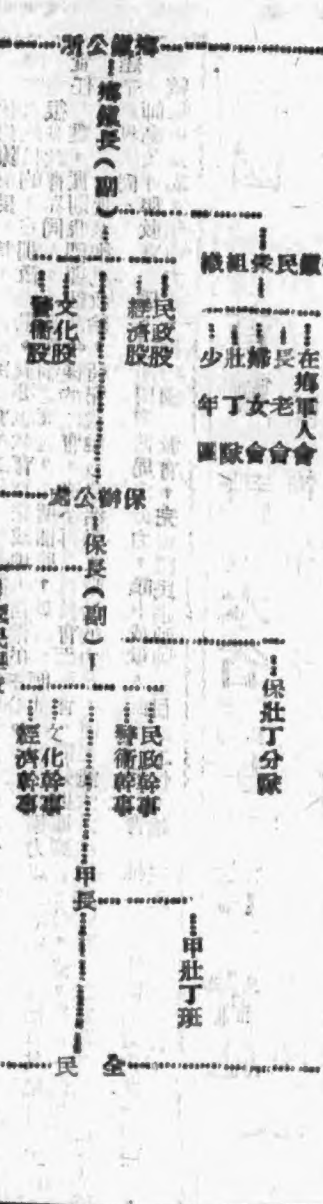 鄉鎮公所
鄉鎮長（副）
鎮民眾組織
在鄉軍人會
長老會
婦女會
壯丁隊
少年團
民政股
經濟股
文化股
警衛股
保辦公處
保長（副）
保壯丁分隊
民政幹事
警衛幹事
文化幹事
經濟幹事
甲長
甲壯丁班
全民